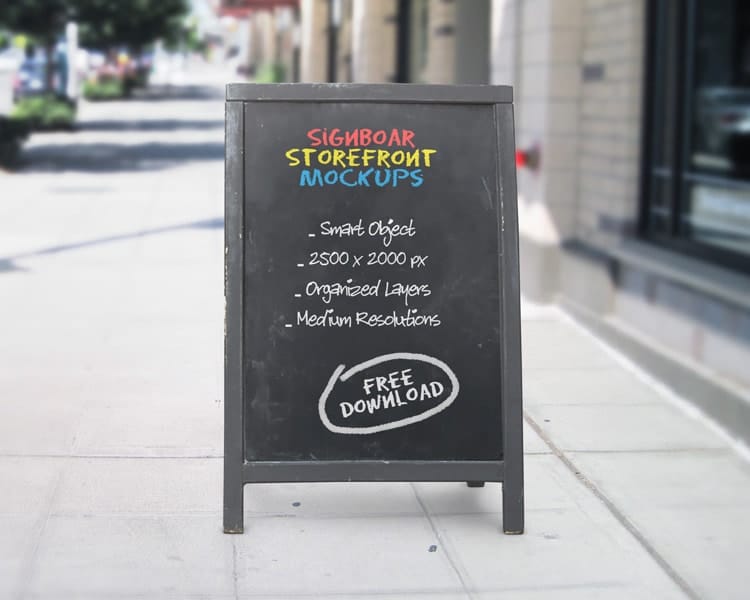 SIGNBOAR
STOREFRONT
MOCKUPS
- Smart Object
- 2500 x 2000 px
- Organized Layers
- Medium Resolutions
FREE
DOWNLOAD